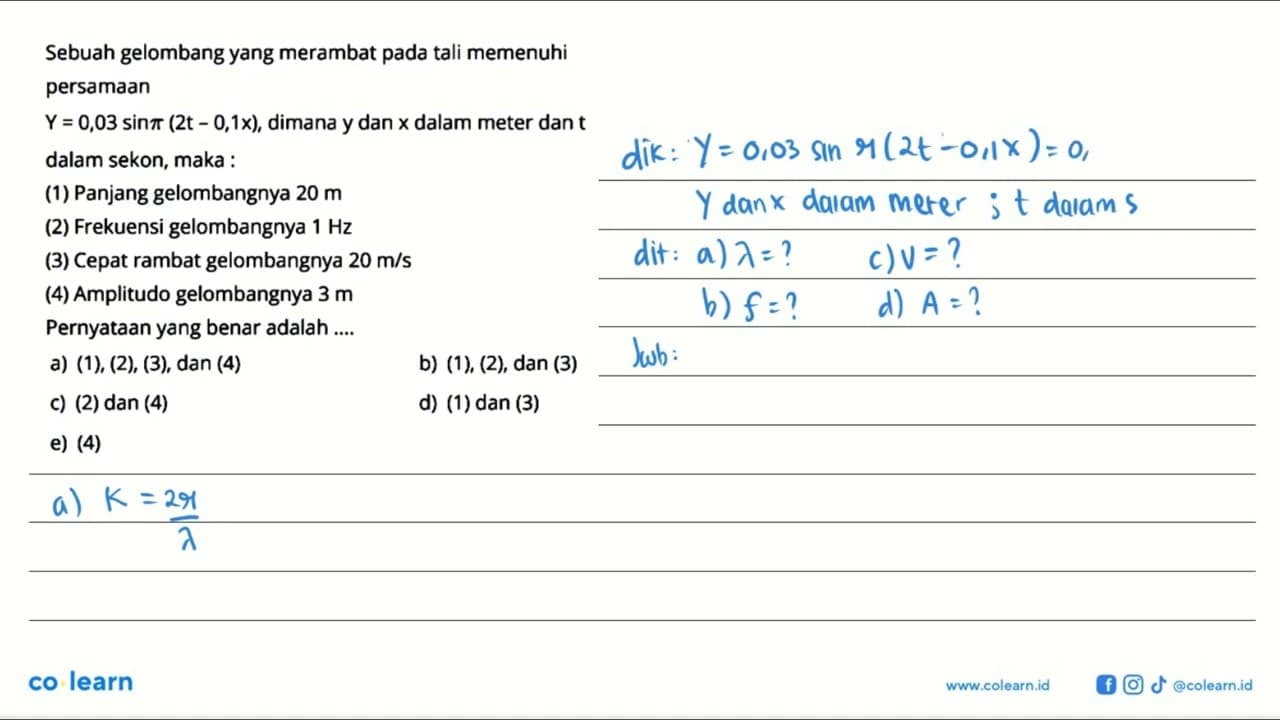 Sebuah gelombang yang merambat pada tali memenuhi
persamaan
Y = 0,03 sinπ (2t – 0,1x), dimana y dan x dalam meter dan t
dalam sekon, maka :
(1) Panjang gelombangnya 20 m
(2) Frekuensi gelombangnya 1 Hz
(3) Cepat rambat gelombangnya 20 m/s
(4) Amplitudo gelombangnya 3 m
Pernyataan yang benar adalah ....
a) (1), (2), (3), dan (4) b) (1), (2), dan (3)
c) (2) dan (4) d) (1) dan (3)
e) (4)
dik: Y = 0,03 sin π (2t - 0,1x) = 0,
Y dan x dalam meter ; t dalam s
dit: a) λ = ? c) V = ?
b) f = ? d) A = ?
Jwb:
a) K = 2π
λ
co learn
www.colearn.id @colearn.id